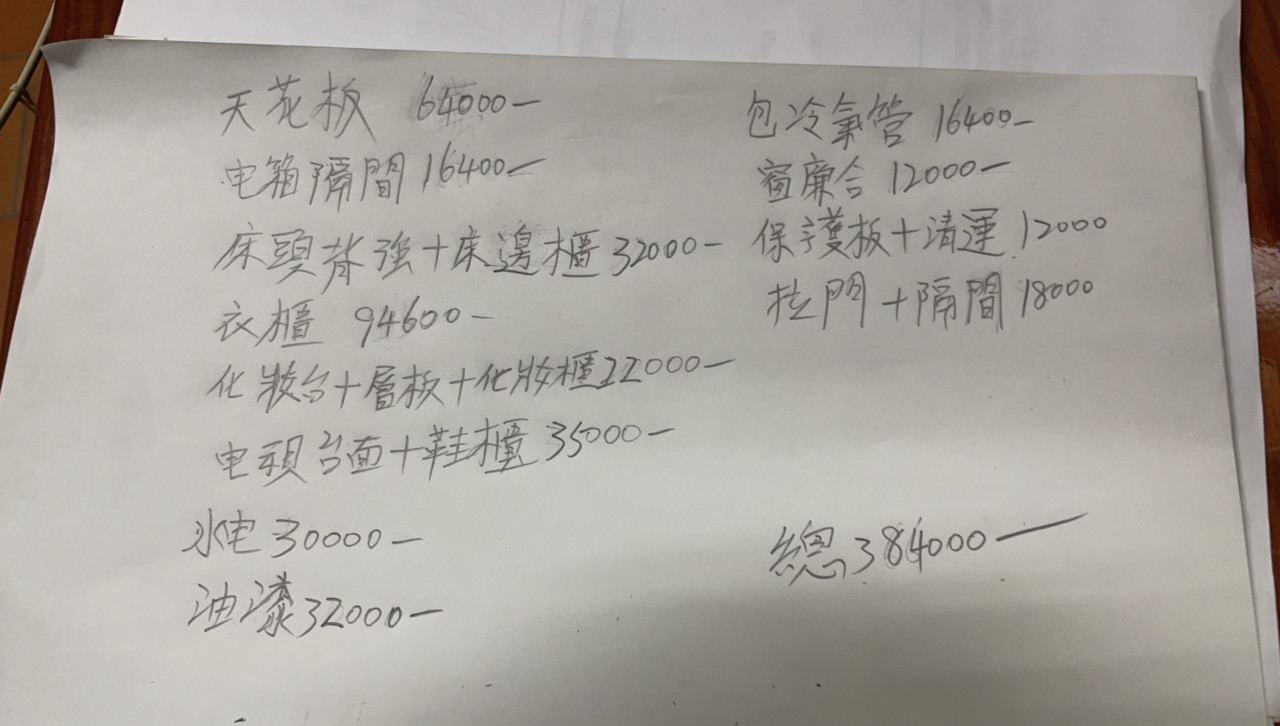 天花板 64000-
电箱隔間 16400-
床頭背強+床邊櫃 32000-
衣櫃 94600-
化妝台+層板+化妝櫃22000-
电視台面+鞋櫃 35000-
水电 30000-
油漆32000-
包冷氣管 16400-
窗廉合 12000-
保護板+清運 12000
拉門+隔間 18000
總 384000-